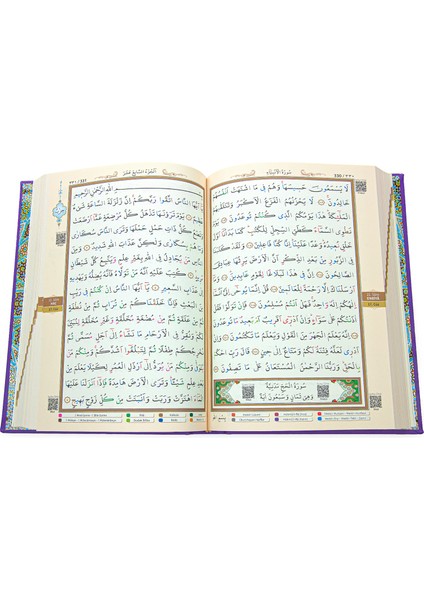 330 / ٣٣٠
سُورَةُ الْاَنْبِيَاءِ
لَا يَسْمَعُونَ حَسِيسَهَا وَهُمْ فِي مَا اشْتَهَتْ اَنْفُسُهُمْ
خَالِدُونَ لَا يَحْزُنُهُمُ الْفَزَعُ الْاَكْبَرُ وَتَتَلَقّٰيهُمُ
الْمَلٰٓئِكَةُ هٰذَا يَوْمُكُمُ الَّذِي كُنْتُمْ تُوعَدُونَ يَوْمَ
نَطْوِي السَّمَاءَ كَطَيِّ السِّجِلِّ لِلْكُتُبِ كَمَا بَدَأْنَا اَوَّلَ
خَلْقٍ نُعِيدُهُ وَعْدًا عَلَيْنَا اِنَّا كُنَّا فَاعِلِينَ وَلَقَدْ كَتَبْنَا
فِي الزَّبُورِ مِنْ بَعْدِ الذِّكْرِ اَنَّ الْاَرْضَ يَرِثُهَا عِبَادِيَ
الصَّالِحُونَ اِنَّ فِي هٰذَا لَبَلَاغًا لِقَوْمٍ عَابِدِينَ وَمَا
اَرْسَلْنَاكَ اِلَّا رَحْمَةً لِلْعَالَمِينَ قُلْ اِنَّمَا يُوحٰى اِلَيَّ اَنَّمَا
اِلٰهُكُمْ اِلٰهٌ وَاحِدٌ فَهَلْ اَنْتُمْ مُسْلِمُونَ فَاِنْ تَوَلَّوْا فَقُلْ
اٰذَنْتُكُمْ عَلٰى سَوَاءٍ وَاِنْ اَدْرِي اَقَرِيبٌ اَمْ بَعِيدٌ مَا تُوعَدُونَ
اِنَّهُ يَعْلَمُ الْجَهْرَ مِنَ الْقَوْلِ وَيَعْلَمُ مَا تَكْتُمُونَ وَاِنْ
اَدْرِي لَعَلَّهُ فِتْنَةٌ لَكُمْ وَمَتَاعٌ اِلٰى حِينٍ قَالَ رَبِّ احْكُمْ
بِالْحَقِّ وَرَبُّنَا الرَّحْمٰنُ الْمُسْتَعَانُ عَلٰى مَا تَصِفُونَ
سُورَةُ الْحَجِّ مَدَنِيَّةٌ
وَهِيَ ثَمَانٍ وَسَبْعُونَ اٰيَةً
اَلْجُزْءُ السَّابِعُ عَشَرَ
331 / ٣٣١
بِسْمِ اللّٰهِ الرَّحْمٰنِ الرَّحِيمِ
يَا اَيُّهَا النَّاسُ اتَّقُوا رَبَّكُمْ اِنَّ زَلْزَلَةَ السَّاعَةِ شَيْءٌ
عَظِيمٌ يَوْمَ تَرَوْنَهَا تَذْهَلُ كُلُّ مُرْضِعَةٍ عَمَّا اَرْضَعَتْ
وَتَضَعُ كُلُّ ذَاتِ حَمْلٍ حَمْلَهَا وَتَرَى النَّاسَ سُكَارٰى
وَمَا هُمْ بِسُكَارٰى وَلٰكِنَّ عَذَابَ اللّٰهِ شَدِيدٌ وَمِنَ
النَّاسِ مَنْ يُجَادِلُ فِي اللّٰهِ بِغَيْرِ عِلْمٍ وَيَتَّبِعُ كُلَّ شَيْطَانٍ
مَرِيدٍ كُتِبَ عَلَيْهِ اَنَّهُ مَنْ تَوَلَّاهُ فَاَنَّهُ يُضِلُّهُ وَيَهْدِيهِ
اِلٰى عَذَابِ السَّعِيرِ يَا اَيُّهَا النَّاسُ اِنْ كُنْتُمْ فِي رَيْبٍ
مِنَ الْبَعْثِ فَاِنَّا خَلَقْنَاكُمْ مِنْ تُرَابٍ ثُمَّ مِنْ نُطْفَةٍ ثُمَّ
مِنْ عَلَقَةٍ ثُمَّ مِنْ مُضْغَةٍ مُخَلَّقَةٍ وَغَيْرِ مُخَلَّقَةٍ لِنُبَيِّنَ
لَكُمْ وَنُقِرُّ فِي الْاَرْحَامِ مَا نَشَاءُ اِلٰى اَجَلٍ مُسَمًّى ثُمَّ
نُخْرِجُكُمْ طِفْلًا ثُمَّ لِتَبْلُغُوا اَشُدَّكُمْ وَمِنْكُمْ مَنْ
يُتَوَفّٰى وَمِنْكُمْ مَنْ يُرَدُّ اِلٰى اَرْذَلِ الْعُمُرِ لِكَيْلَا يَعْلَمَ مِنْ بَعْدِ
عِلْمٍ شَيْئًا وَتَرَى الْاَرْضَ هَامِدَةً فَاِذَا اَنْزَلْنَا عَلَيْهَا
الْمَاءَ اهْتَزَّتْ وَرَبَتْ وَاَنْبَتَتْ مِنْ كُلِّ زَوْجٍ بَهِيجٍ